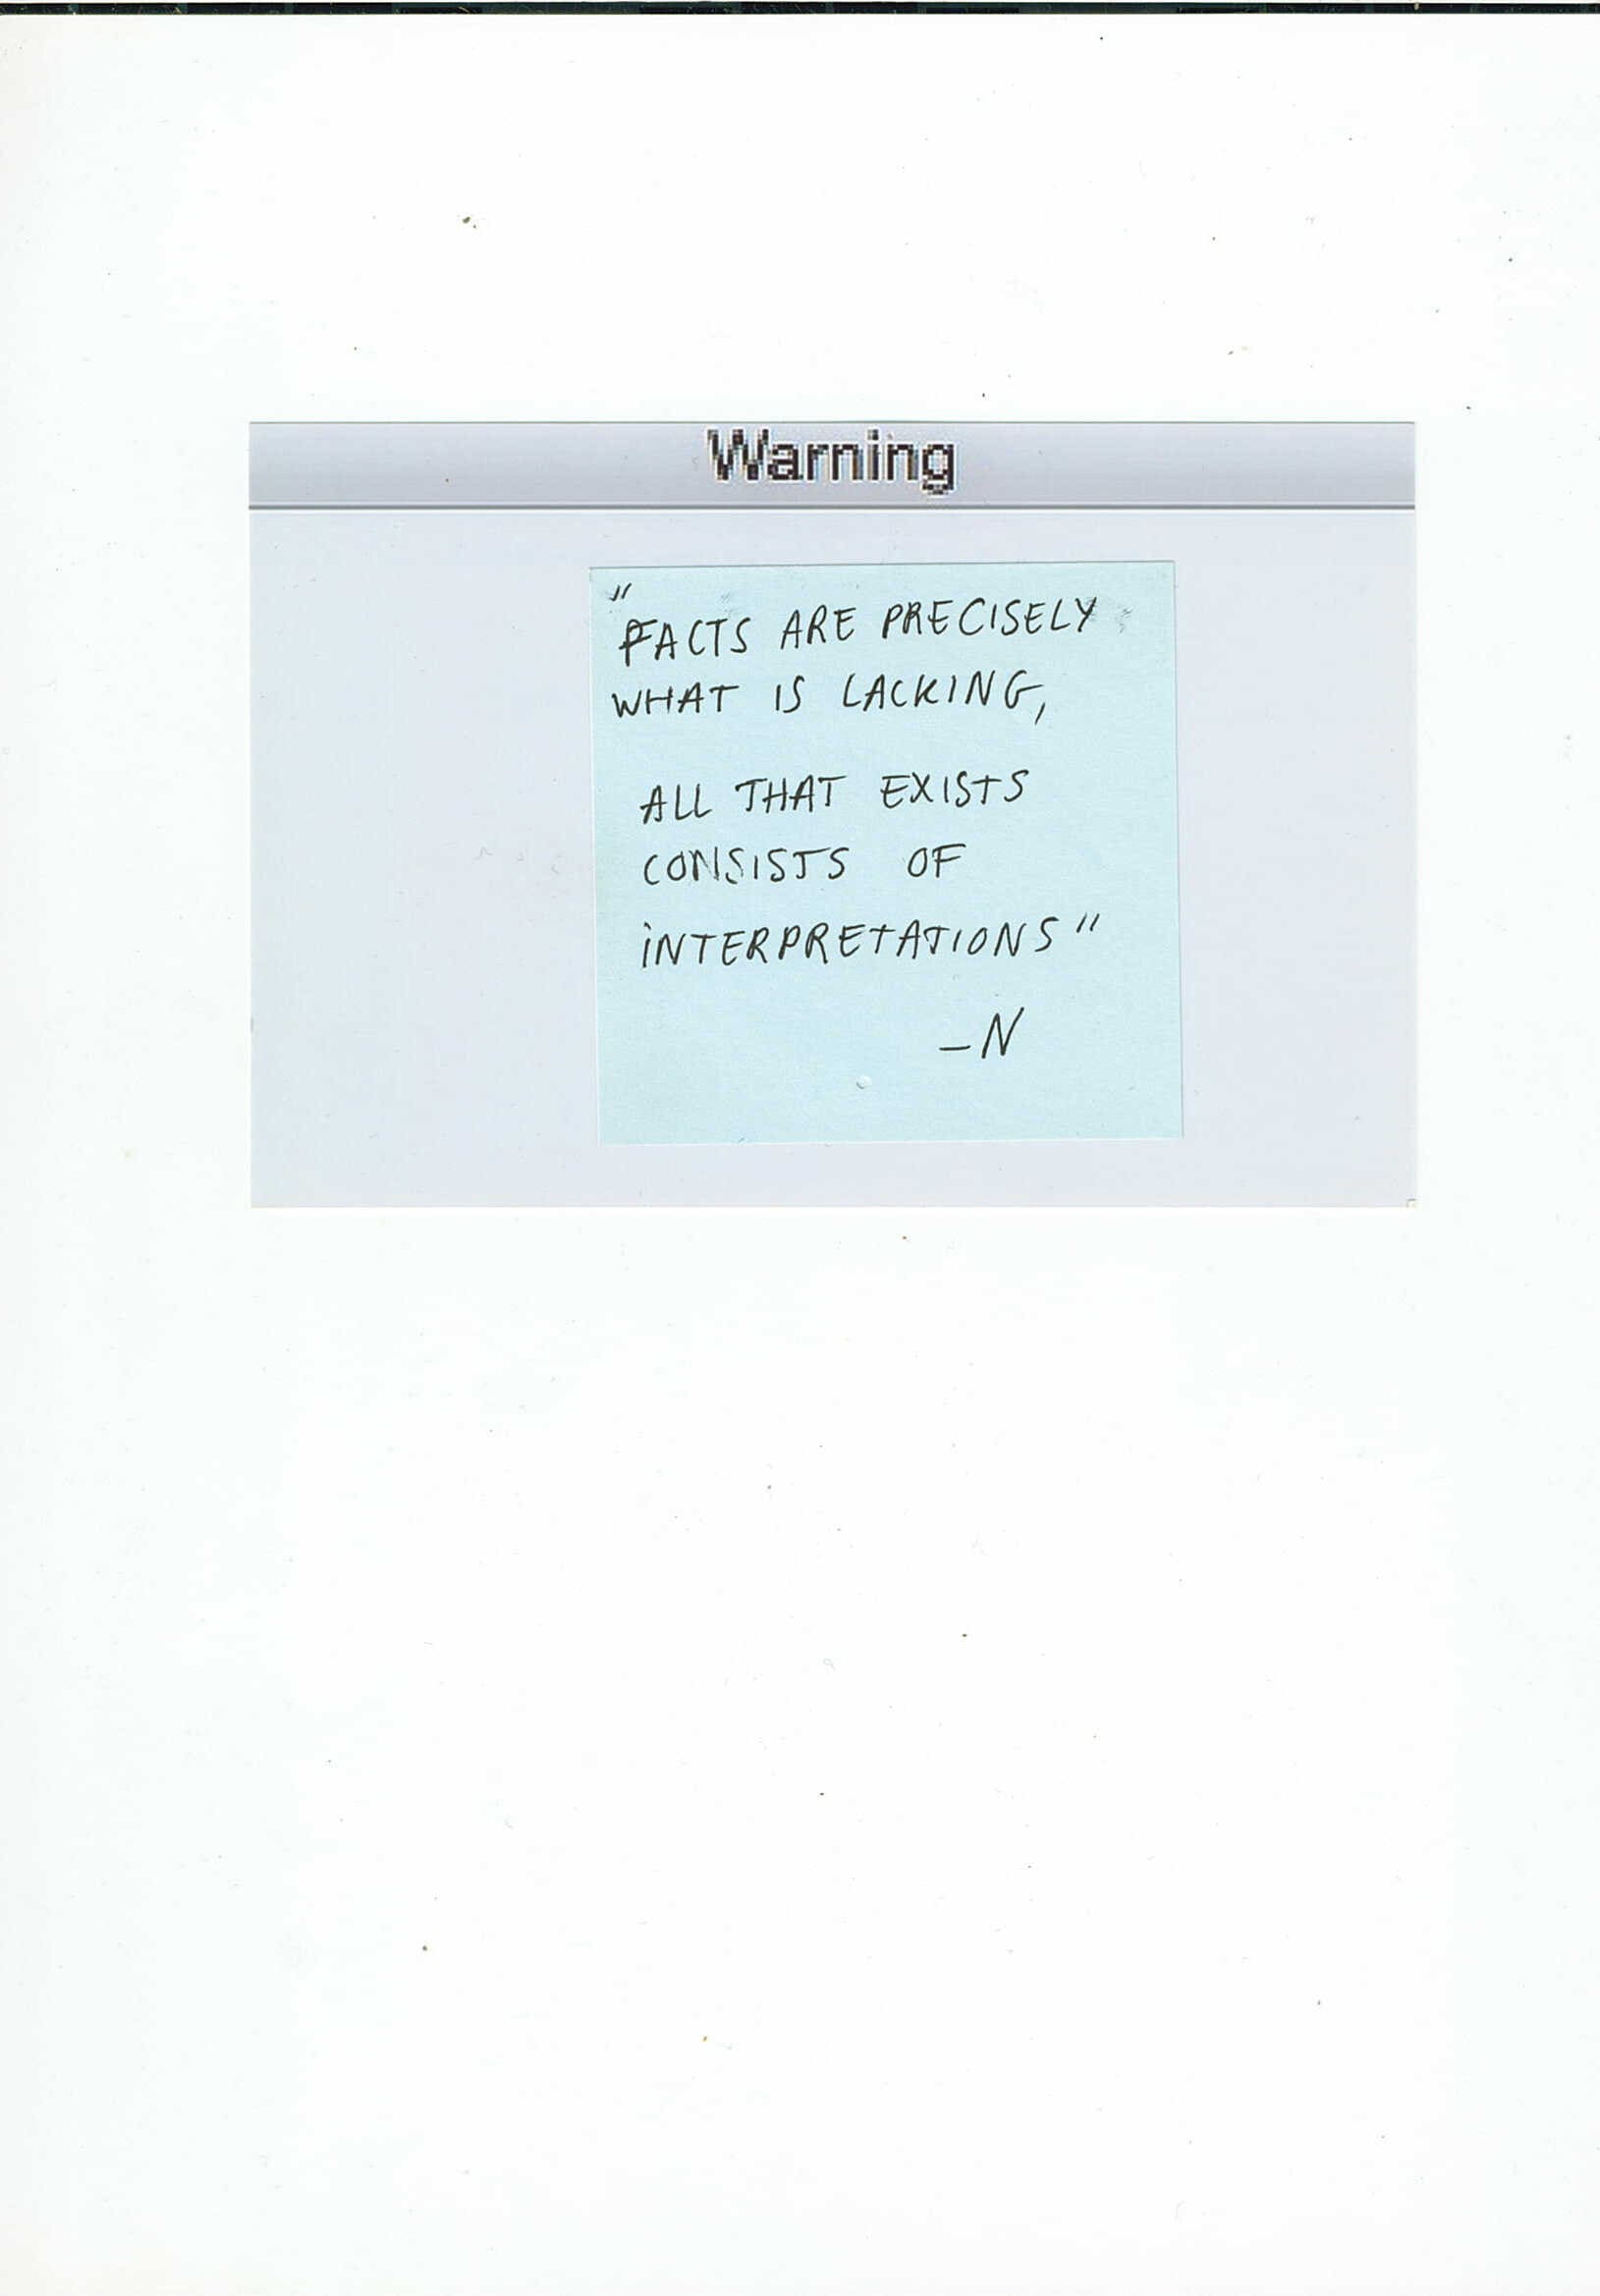 Warning
"FACTS ARE PRECISELY
WHAT IS LACKING,
ALL THAT EXISTS
CONSISTS OF
INTERPRETATIONS"
–N